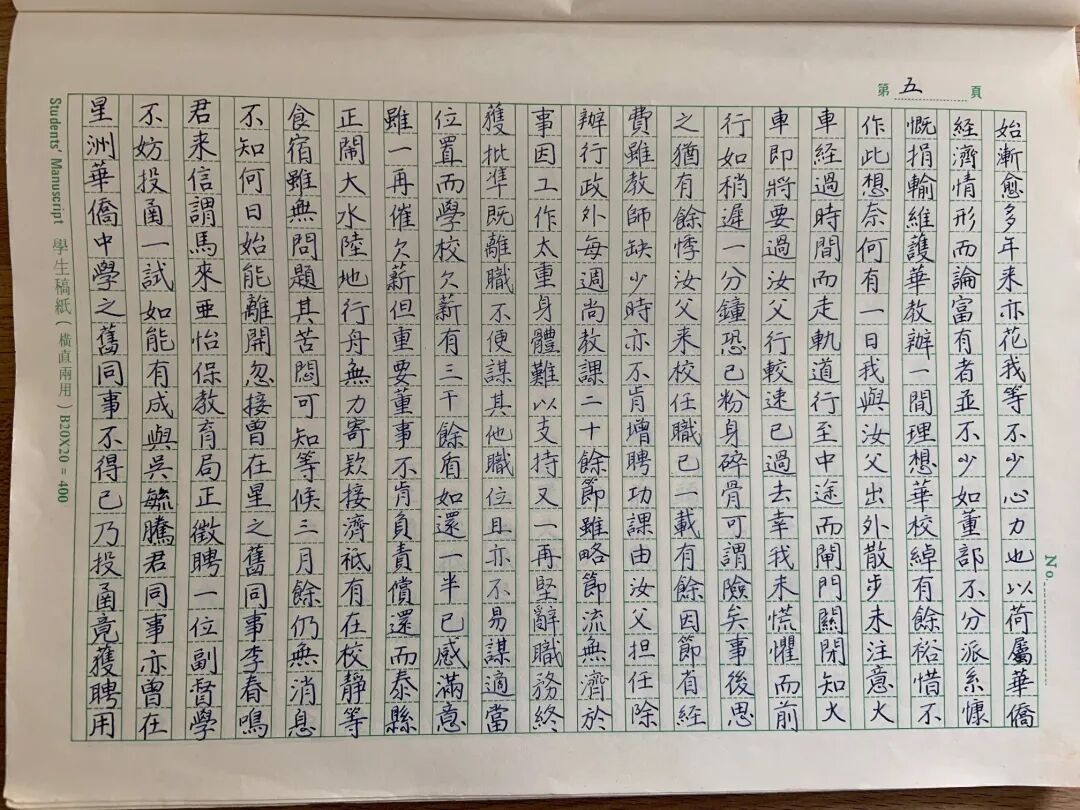 第五頁
始漸愈多年来亦花我等不少心力也以荷屬華僑
經濟情形而論富有者並不少如董部不分派系慷
慨捐輸維護華教辦一間理想華校綽有餘裕惜不
作此想奈何有一日我與汝父出外散步未注意火
車經過時間而走軌道行至中途而閘門關閉知火
車即將要過汝父行較速已過去幸我未慌懼而前
行如稍遲一分鐘恐已粉身碎骨可謂險矣事後思
之猶有餘悸汝父来校任職已一載有餘因節省經
費雖教師缺少時亦不肯增聘功課由汝父担任除
辦行政外每週尚教課二十餘節雖略節流無濟於
事因工作太重身體難以支持又一再堅辭職務終
獲批准既離職不便謀其他職位且亦不易謀適當
位置而學校欠薪有三千餘盾如還一半已感滿意
雖一再催欠薪但重要董事不肯負責償還而泰縣
正鬧大水陸地行舟無力寄欵接濟祗有在校靜等
食宿雖無問題其苦悶可知等候三月餘仍無消息
不知何日始能離開忽接曾在星之舊同事李春鳴
君来信謂馬來亜怡保教育局正徵聘一位副督學
不妨投函一試如能有成與吳毓騰君同事亦曾在
星洲華僑中學之舊同事不得已乃投函竟獲聘用
No.
Students' Manuscript 學生稿紙(橫直兩用)B20X20=400